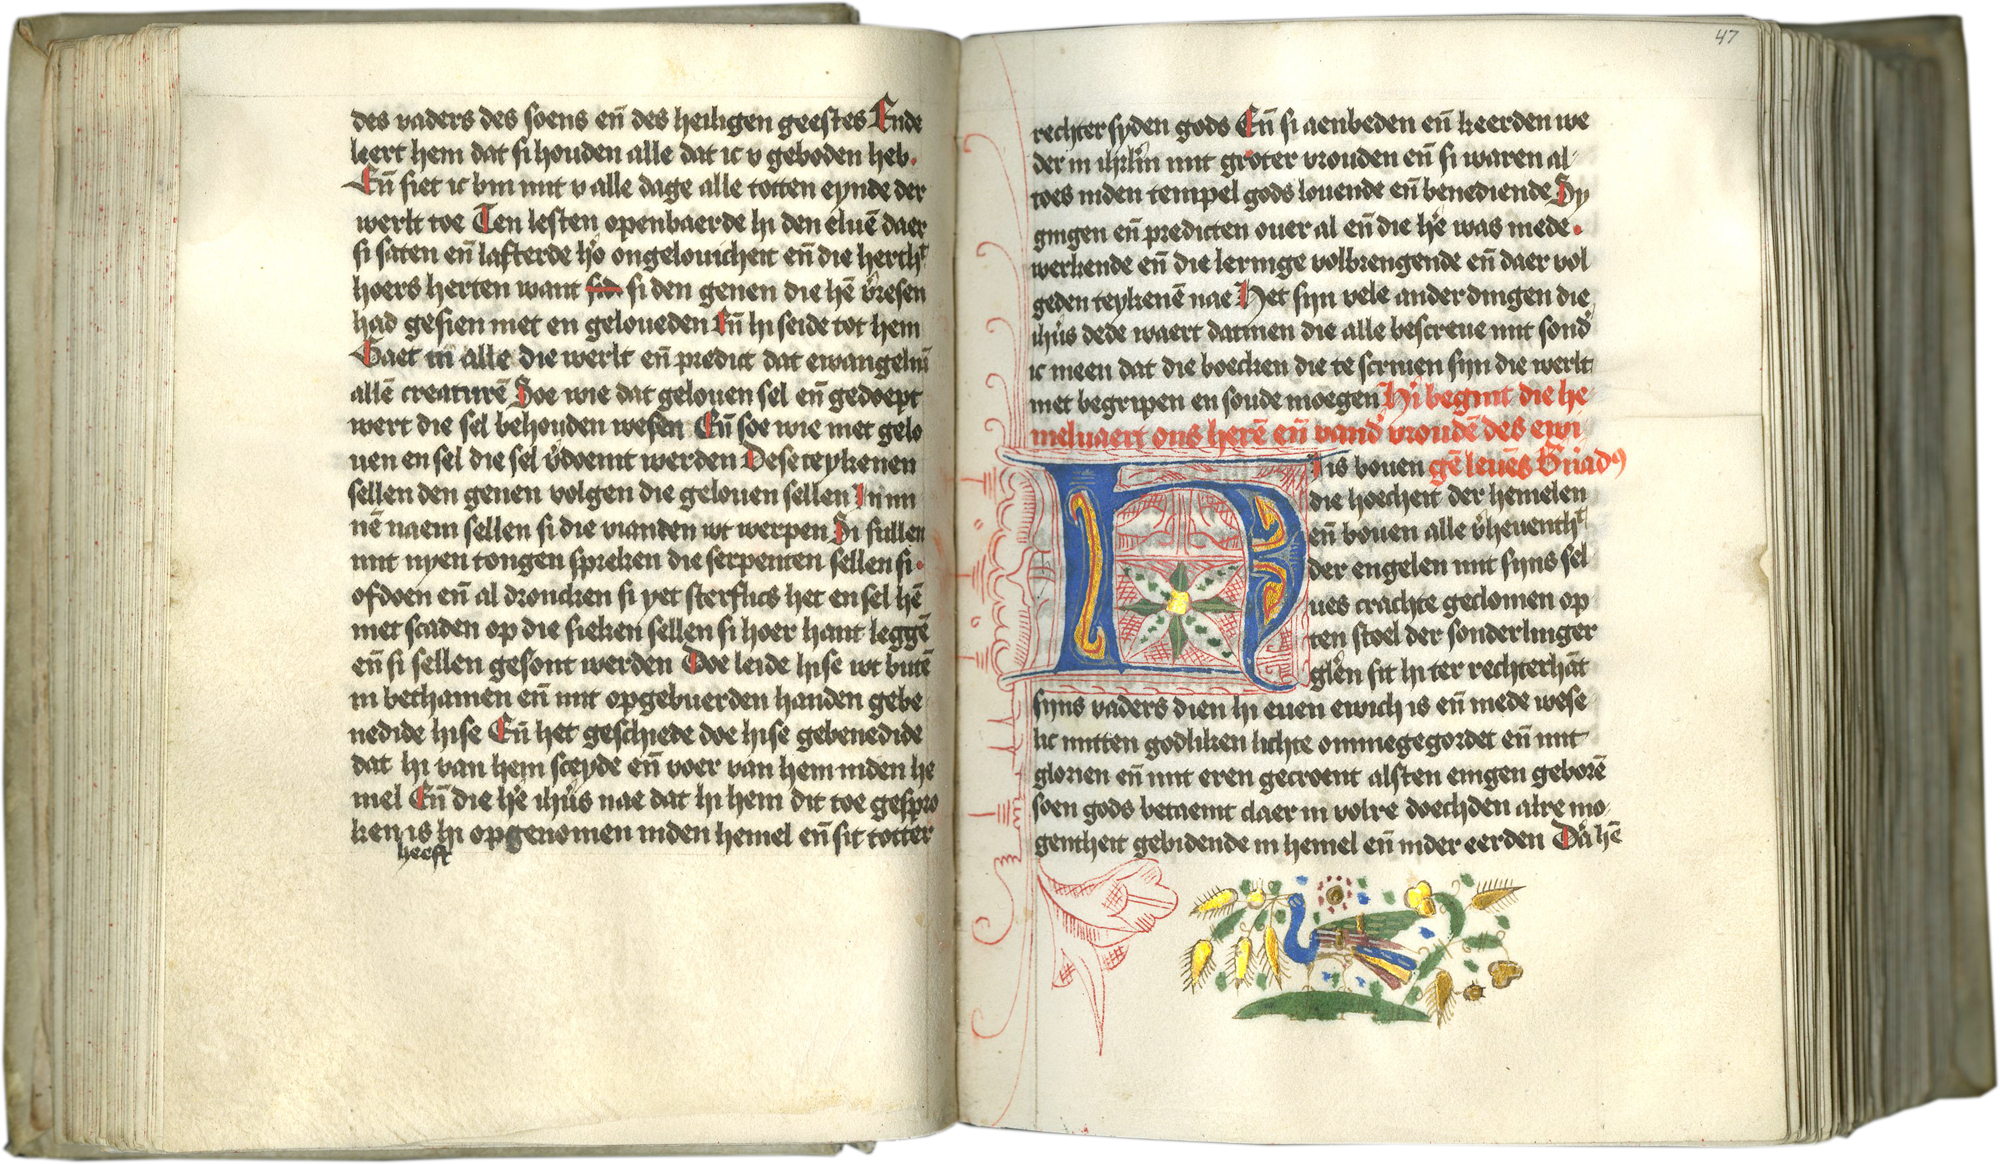 des vaders des soens en̄ des heiligen geestes Ende
leert hem dat si houden alle dat ic v geboden heb.
En̄ siet ic bin mit v alle dage alle totten eynde der
werlt toe Ten lesten openbaerde hi den eluē daer
si saten en̄ lasterde hoͬ ongelouicheit en̄ die hertheᵗ
hoers herten want si den genen die hē v̓resen
had gesien niet en geloueden En̄ hi seide tot hem
Gaet in alle die werlt en̄ predict dat ewangeliū
allē creaturē Soe wie dat gelouen sel en̄ gedoept
wert die sel behouden wesen En̄ soe wie niet gelo
uen en sel die sel v̓doemt werden Dese teykenen
sellen den genen volgen die gelouen sellen In mi
nē naem sellen si die vianden wt werpen Si sullen
mit nyen tongen spreken die serpenten sellen si
ofdoen en̄ al droncken si yet sterflics het en sel hē
niet scaden op die sieken sellen si hoer hant leggē
en̄ si sellen gesont werden Doe leide hise wt butē
in bethanien en̄ mit opgebuerden handen gebe
nedide hise En̄ het geschiede doe hise gebenedide
dat hi van hem sceyde en̄ voer van hem inden he
mel En̄ die he͛ ihūs nae dat hi hem dit toe gespro
ken is hi opgenomen inden hemel en̄ sit totter
heeft
47
rechter syden gods En̄ si aenbeden en̄ keerden we
der in ihrl̄m mit groter vrouden en̄ si waren al
toes inden tempel gods louende en̄ benediende Sy
gingen en̄ predicten ouer al en̄ die he͛ was mede
werkende en̄ die leringe volbrengende en̄ daer vol
geden teykenē nae Het sijn vele ander dingen die
ihūs dede waert datmen die alle bescreue mit sondͬ
ic meen dat die boecken die te scriuen sijn die werlt
niet begripen en soude moegen Hi begint die he
meluaert ons herē en̄ vand̓ vroudē des ewi
gē leuēs
HI is bouen
die hoecheit der hemelen
en̄ bouen alle v̓heuenthᵗ
der engelen mit sijns sel
ues crachte geclomen op
ten stoel der sonderlinger
glēn sit hi ter rechterhāt
sijns vaders dien hi euen ewich is en̄ mede wese
lic mitten godliken lichte ommegegordet en̄ mit
glorien en̄ mit eren gecroent alsten enigen geborē
soen gods betaemt daer in volre doechden alre mo
gentheit gebidende in hemel en̄ inder eerden Da͛ hē